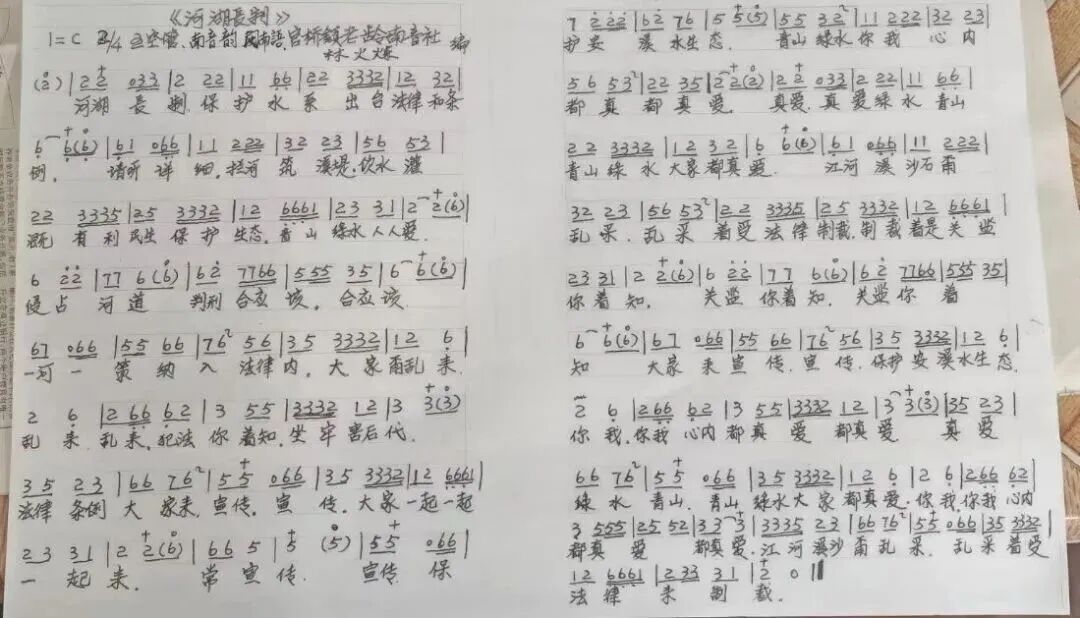 《河湖長制》
1=C 2/4 五空管、南音韵 闽南語 官桥镇老龄南音社 林火炼 编
(2) | 2 2 033 | 2 22 | 11 66 | 22 3332 | 12 32 |
河湖 長 制 保 护 水 系 出 台 法律 和条
6 6(6) | 61 066 | 11 222 | 32 23 | 56 53 |
例, 请听 详 细, 拦河 筑 溪堤, 饮水 灌
22 3335 | 25 3332 | 12 6661 | 23 31 | 2 2(6) |
溉 有 利 民生 保 护 生态, 青 山 绿水 人人爱.
6 22 | 77 6(6) | 62 7766 | 555 35 | 6 6(6) |
侵占 河 道 判刑 合应 该, 合应 该
67 066 | 55 66 | 76² 56 | 35 3332 | 12 6 |
一河 一 策 纳 入 法律 内, 大 家 甭乱 来.
2 6 | 266 62 | 3 55 | 3332 12 | 3 3(3)
乱 来, 乱来, 犯法 你 着知, 坐 牢 害后 代.
35 23 | 66 76² | 55 066 | 35 3332 | 12 6661 |
法律 条例 大 家来, 宣传, 宣 传, 大家 一起 一起
23 31 | 2 2(6) | 66 5 | 5 (5) | 55 066 |
一 起 来. 常 宣 传. 宣传 保
7 222 | 62 76 | 5 5(5) | 55 32² | 11 222 | 32 23 |
护安 溪 水生态. 青山 绿水 你 我 心 内
56 53² | 22 35 | 2 2(2) | 22 033 | 2 22 | 11 66 |
都 真 都 真 爱. 真爱, 真 爱绿 水 青山
22 3332 | 12 32 | 6 6(6) | 61 066 | 11 222 |
青山 绿 水 大家 都真 爱. 江河 溪 沙石 甭
32 23 | 56 53² | 22 3335 | 25 3332 | 12 6661 |
乱 采, 乱 采 着受 法律 制裁, 制 裁 着是 关 监
23 31 | 2 2(6) | 6 22 | 77 6(6) | 62 7766 | 555 35 |
你 着 知, 关 监 你 着 知, 关监 你 着
6 6(6) | 67 066 | 55 66 | 76² 56 | 35 3332 | 12 6 |
知 大家 来 宣 传, 宣 传, 保护 安 溪水生 态.
2 6 | 266 62 | 3 55 | 3332 12 | 3 3(3) | 35 23 |
你 我, 你我 心内 都真 爱 都真 爱 真 爱
66 76² | 55 066 | 35 3332 | 12 6 | 2 6 | 266 62 |
绿 水 青山, 青山 绿水大 家 都真 爱, 你 我, 你我 心内
3 555 | 25 52 | 33 3 | 3335 23 | 66 76² | 55 066 | 35 3332 |
都真 爱 都真 爱, 江 河 溪沙 甭 乱 采, 乱 采 着受
12 6661 | 233 31 | 2 0 ||
法 律 来 制 裁.